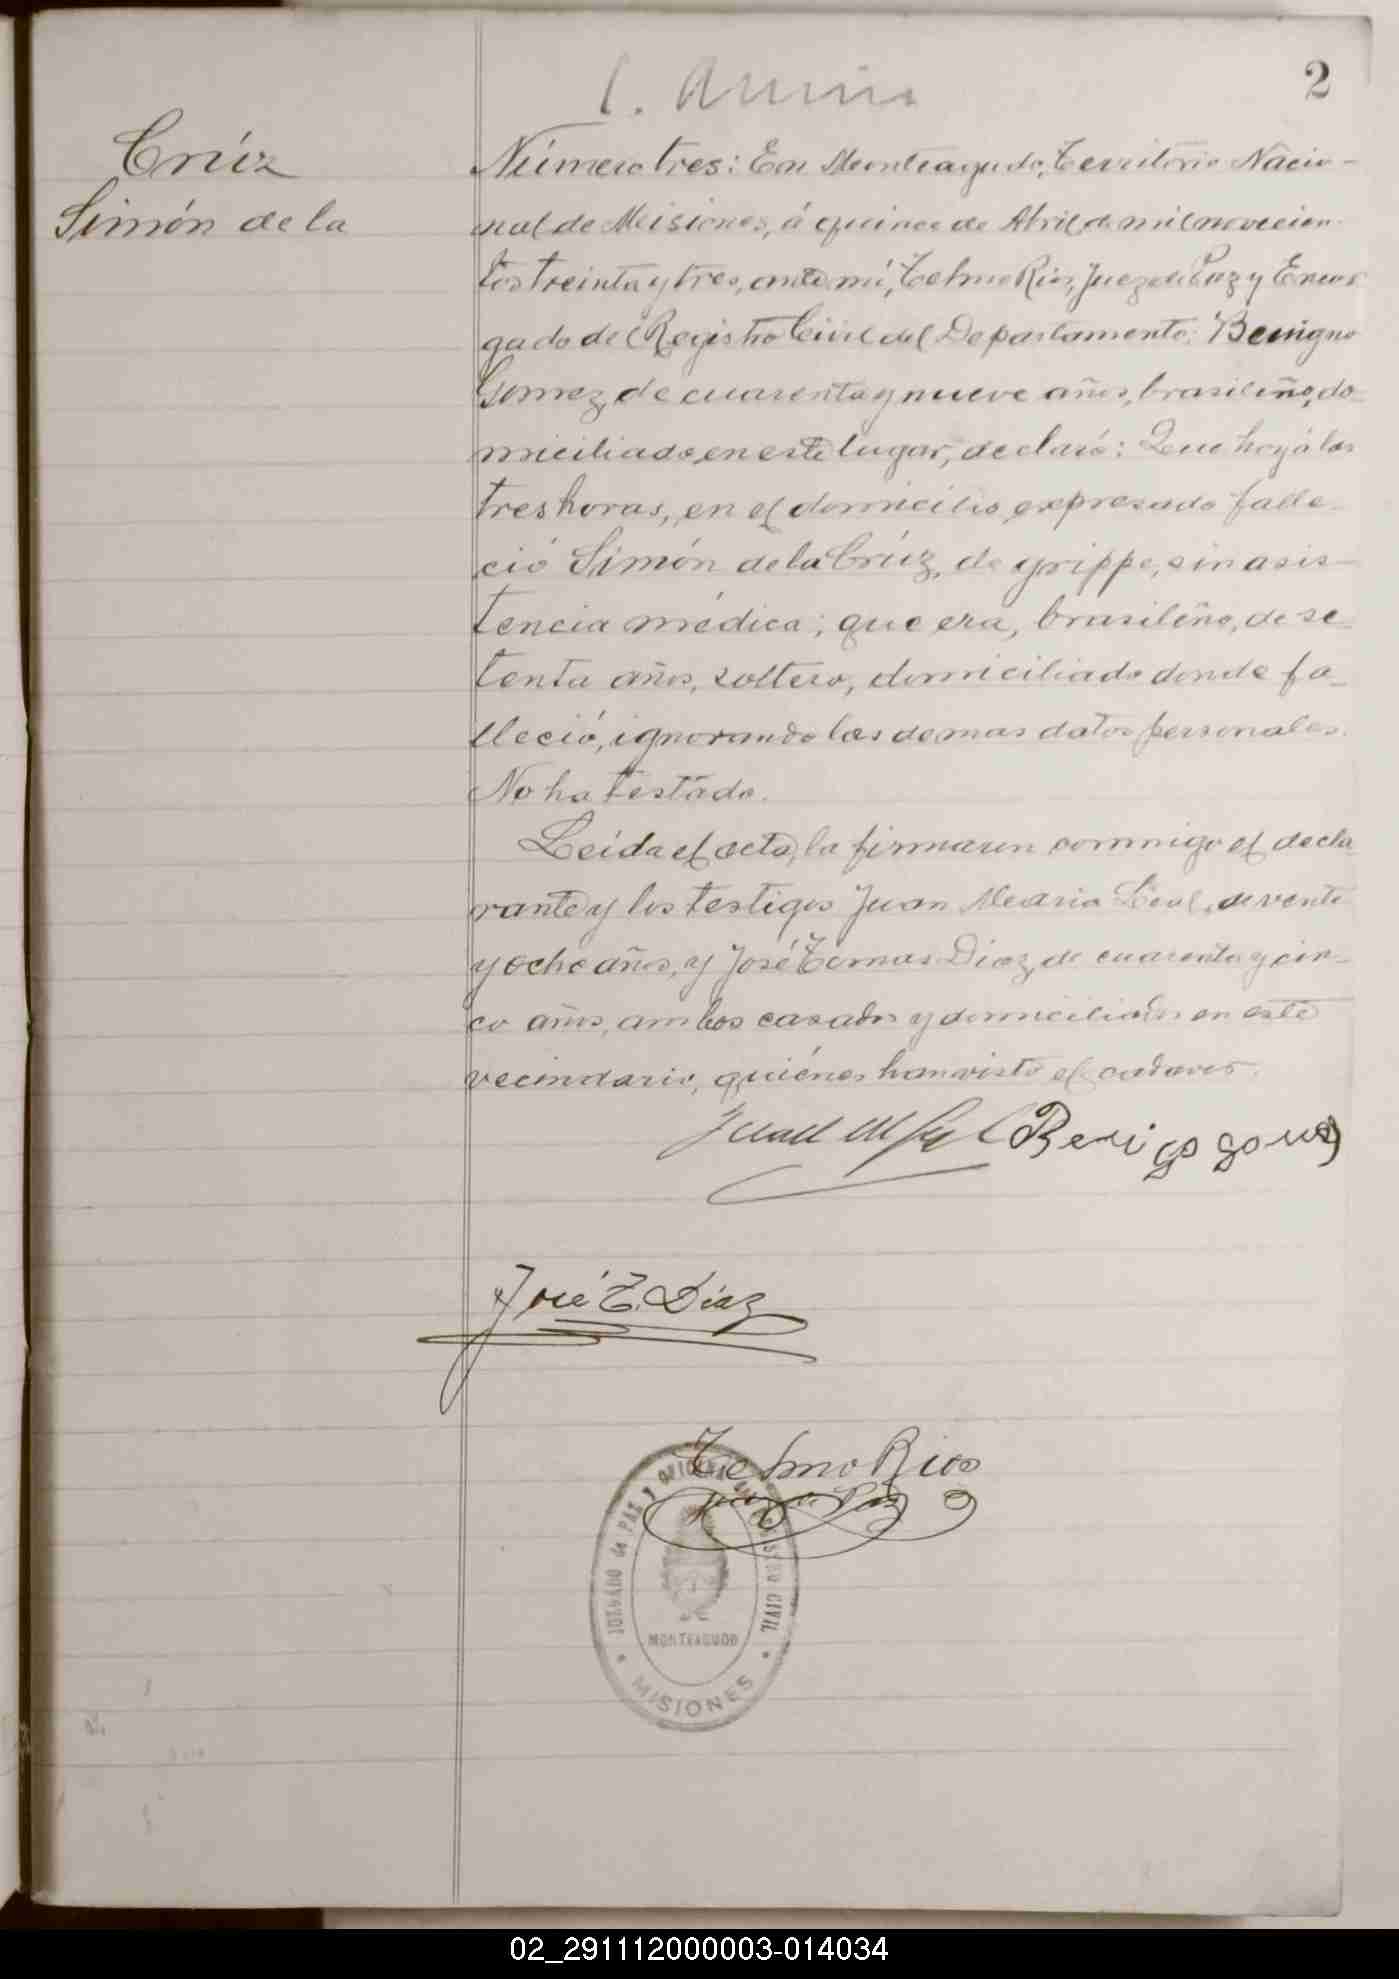 2
Crúz
Simón de la
Número tres: En Monteagudo, Territorio Nacio-
nal de Misiones, á quince de Abril de mil novecien-
tos treinta y tres, ante mí, Telmo Rios, Juez de Paz y Encar
gado del Registro Civil del Departamento: Benigno
Gomez, de cuarenta y nueve años, brasileño, do-
miciliado en este lugar, declaró: Que hoy á las
tres horas, en el domicilio expresado falle-
ció Simón de la Crúz, de grippe, sin asis-
tencia médica; que era, brasileño, de se-
tenta años, soltero, domiciliado donde fa-
lleció, ignorando las demas datos personales.
No ha testado.
Leida el acta, la firmaron commigo el decla
rante y los testigos Juan Maria Leal, de vente
y ocho años, y José Tomas Diaz, de cuarenta y cin-
co años, ambos casados y domiciliados en este
vecindario, quiénes han visto el cadaver.
Juan M Leal Benigo gomez
José T. Díaz
Telmo Rios
Juez de Paz
JUZGADO de PAZ y OFICINA DEL REGISTRO CIVIL
MONTEAGUDO
MISIONES
02_291112000003-014034